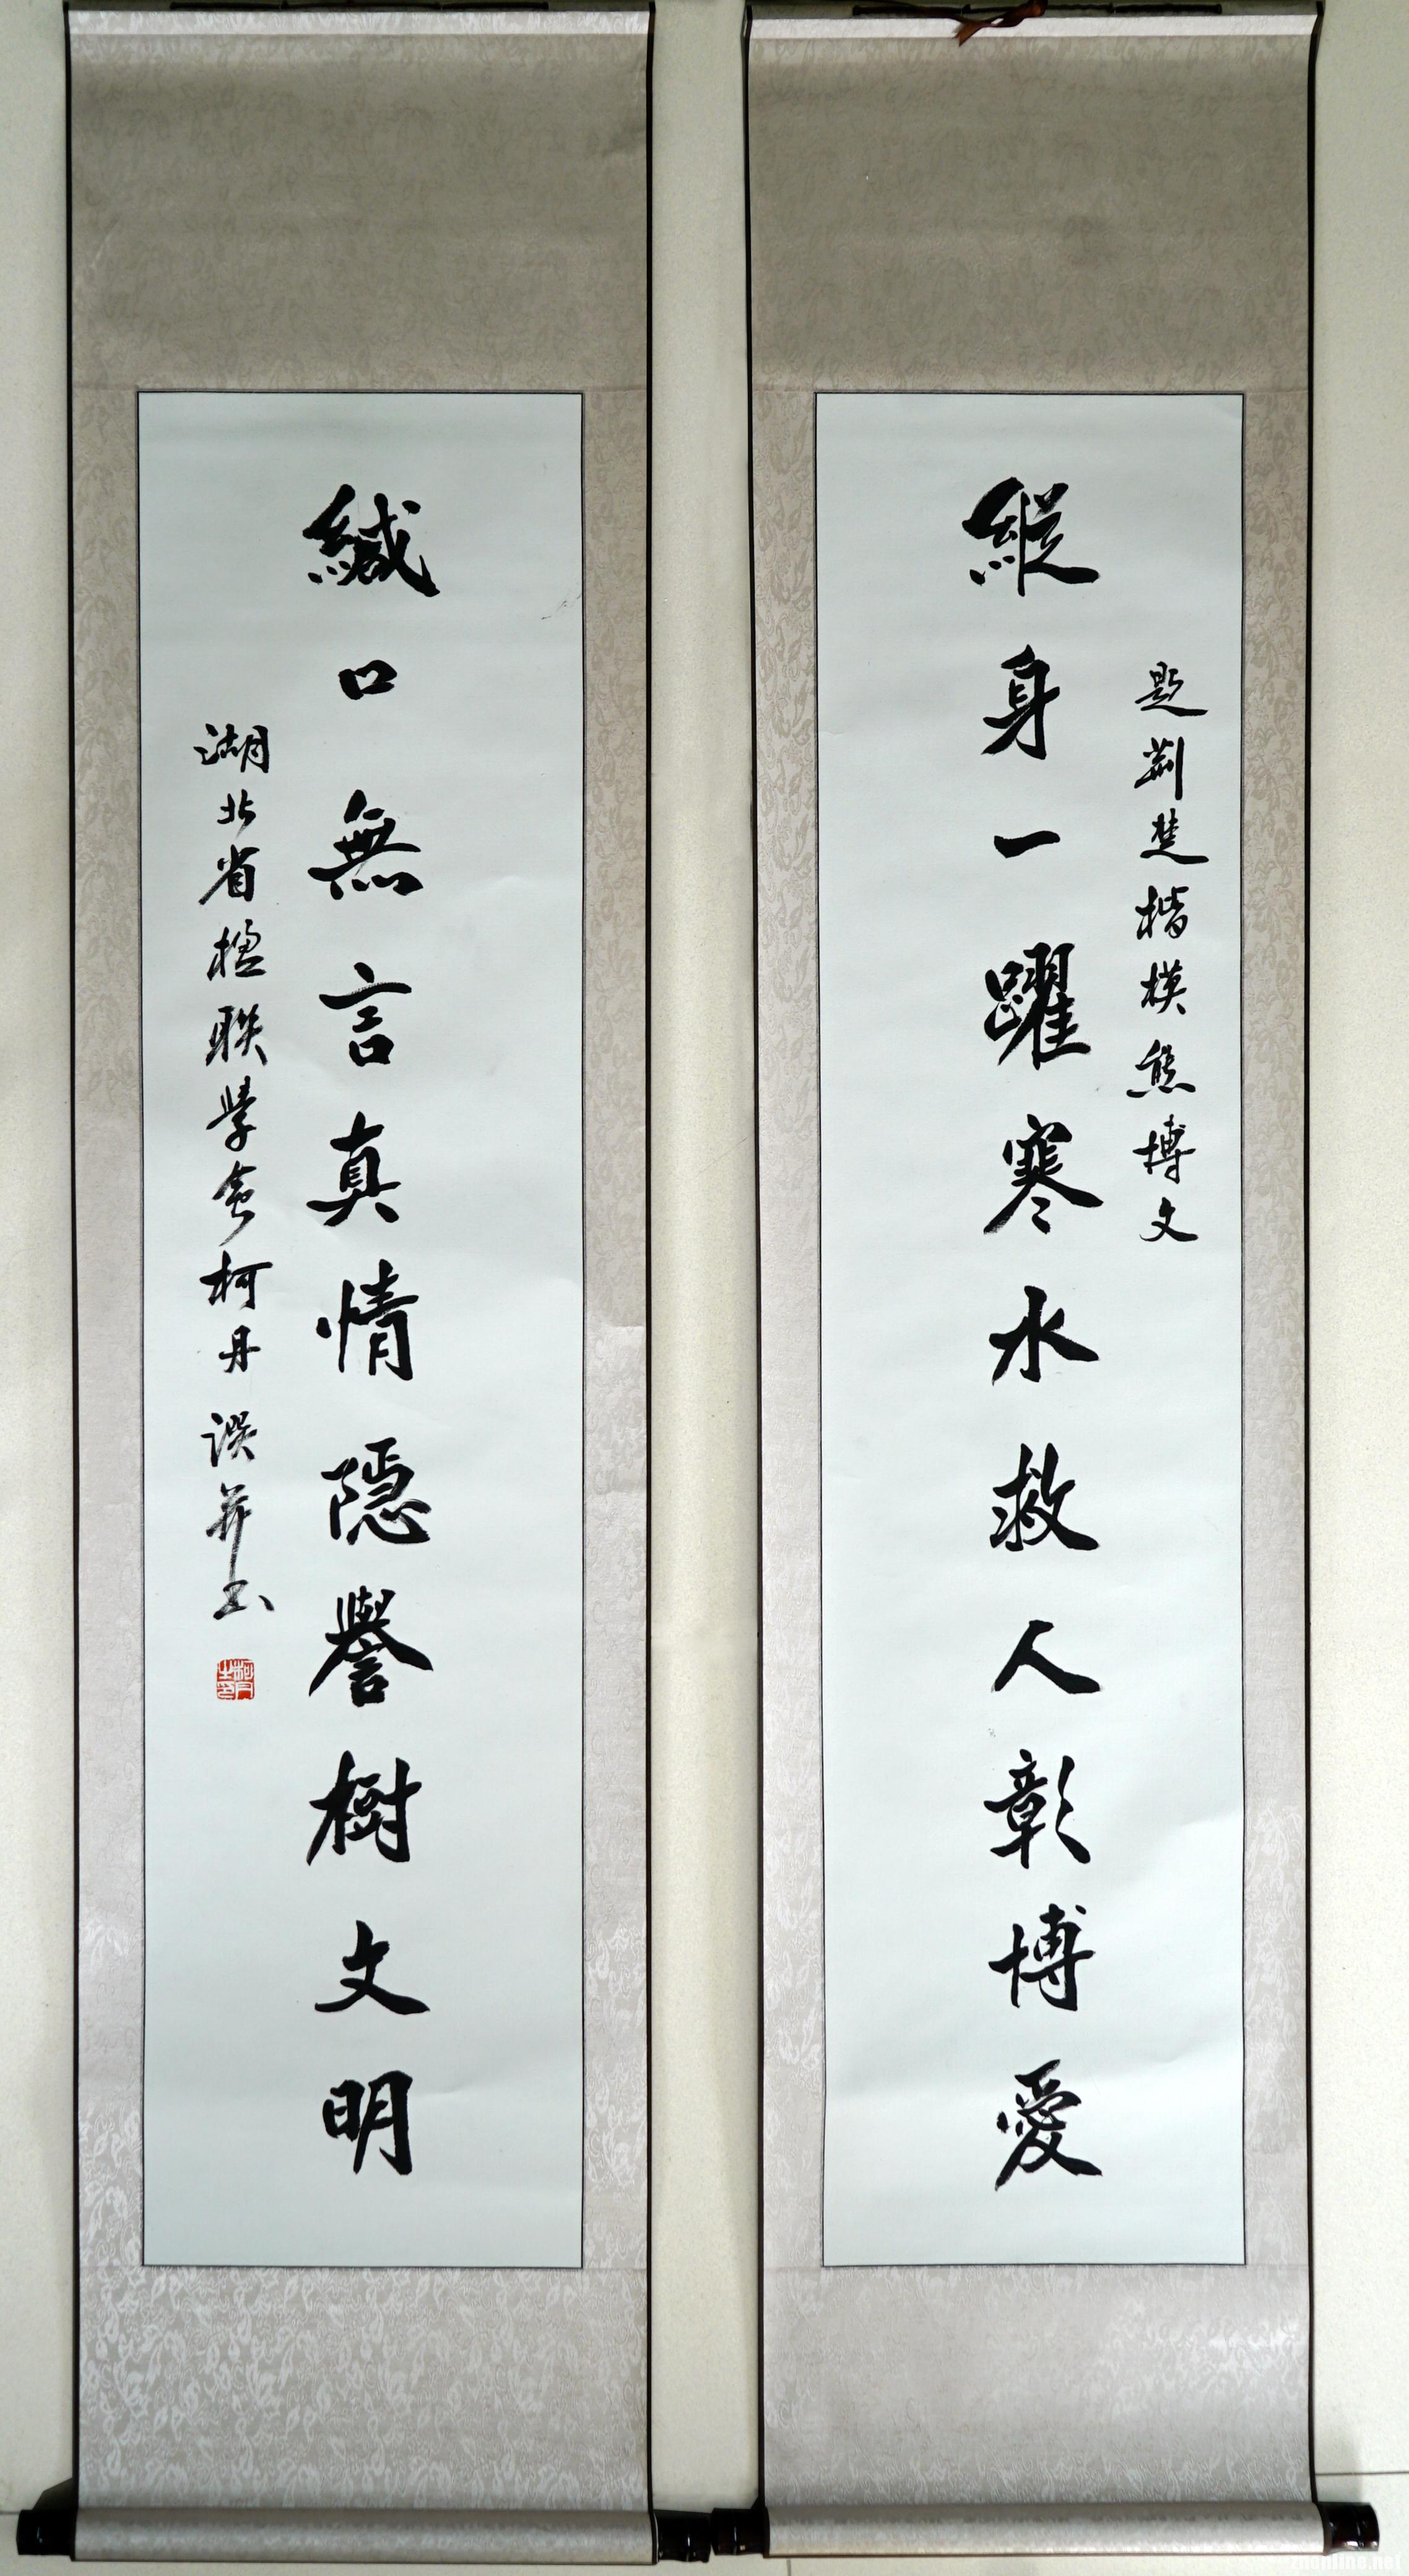 題荊楚楷模熊博文
縱身一躍寒水救人彰博愛
緘口無言真情隱譽樹文明
湖北省楹联學會柯丹 譔并书
柯丹之印